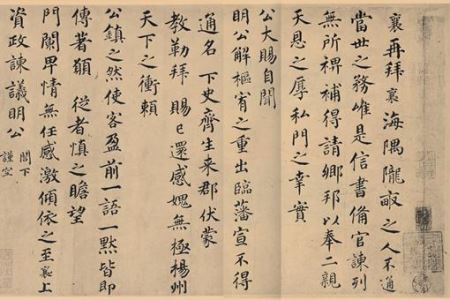 襄再拜襄海隅隴畝之人不通
當世之務唯是信書備官諫列
無所裨補得請鄉邦以奉二親
天恩之厚私門之幸實
公大賜自聞
明公解樞宥之重出臨藩宣不得
通名下史齊生來郡伏蒙
教勒拜賜已還感愧無極楊州
天下之衝賴
公鎮之然使客盈前一語一默皆即
傳著願從者慎之瞻望
門闌卑情無任感激傾依之至襄上
資政諫議明公閤下
謹空